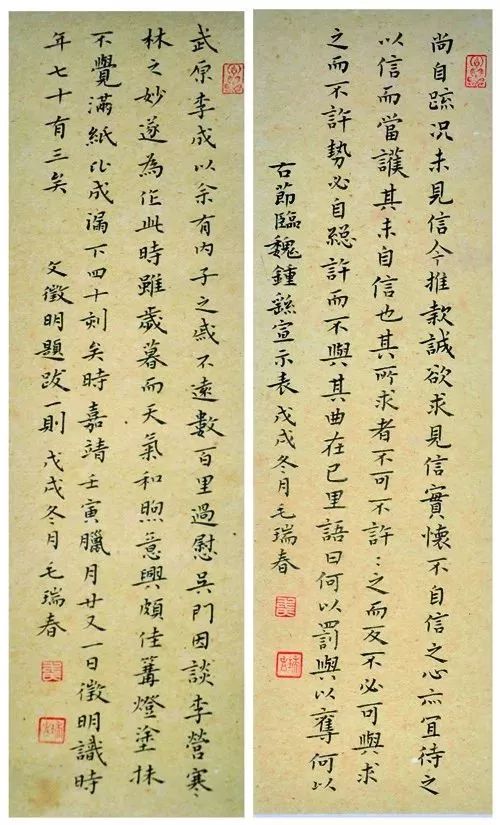 尚自踈況未見信今推款誠欲求見信實懷不自信之心亦宜待之
以信而當護其未自信也其所求者不可不許：之而反不必可與求
之而不許勢必自絕許而不與其曲在己里語曰何以罰與以奪何以
古節臨魏鍾繇宣示表戊戌冬月毛瑞春
武原李成以余有內子之戚不遠數百里過慰吳門因談李營寒
林之妙遂為作此時雖歲暮而天氣和煦意興頗佳篝燈塗抹
不覺滿紙比成漏下四十刻矣時嘉靖壬寅臘月廿又一日徵明識時
年七十有三矣 文徵明題跋一則 戊戌冬月毛瑞春